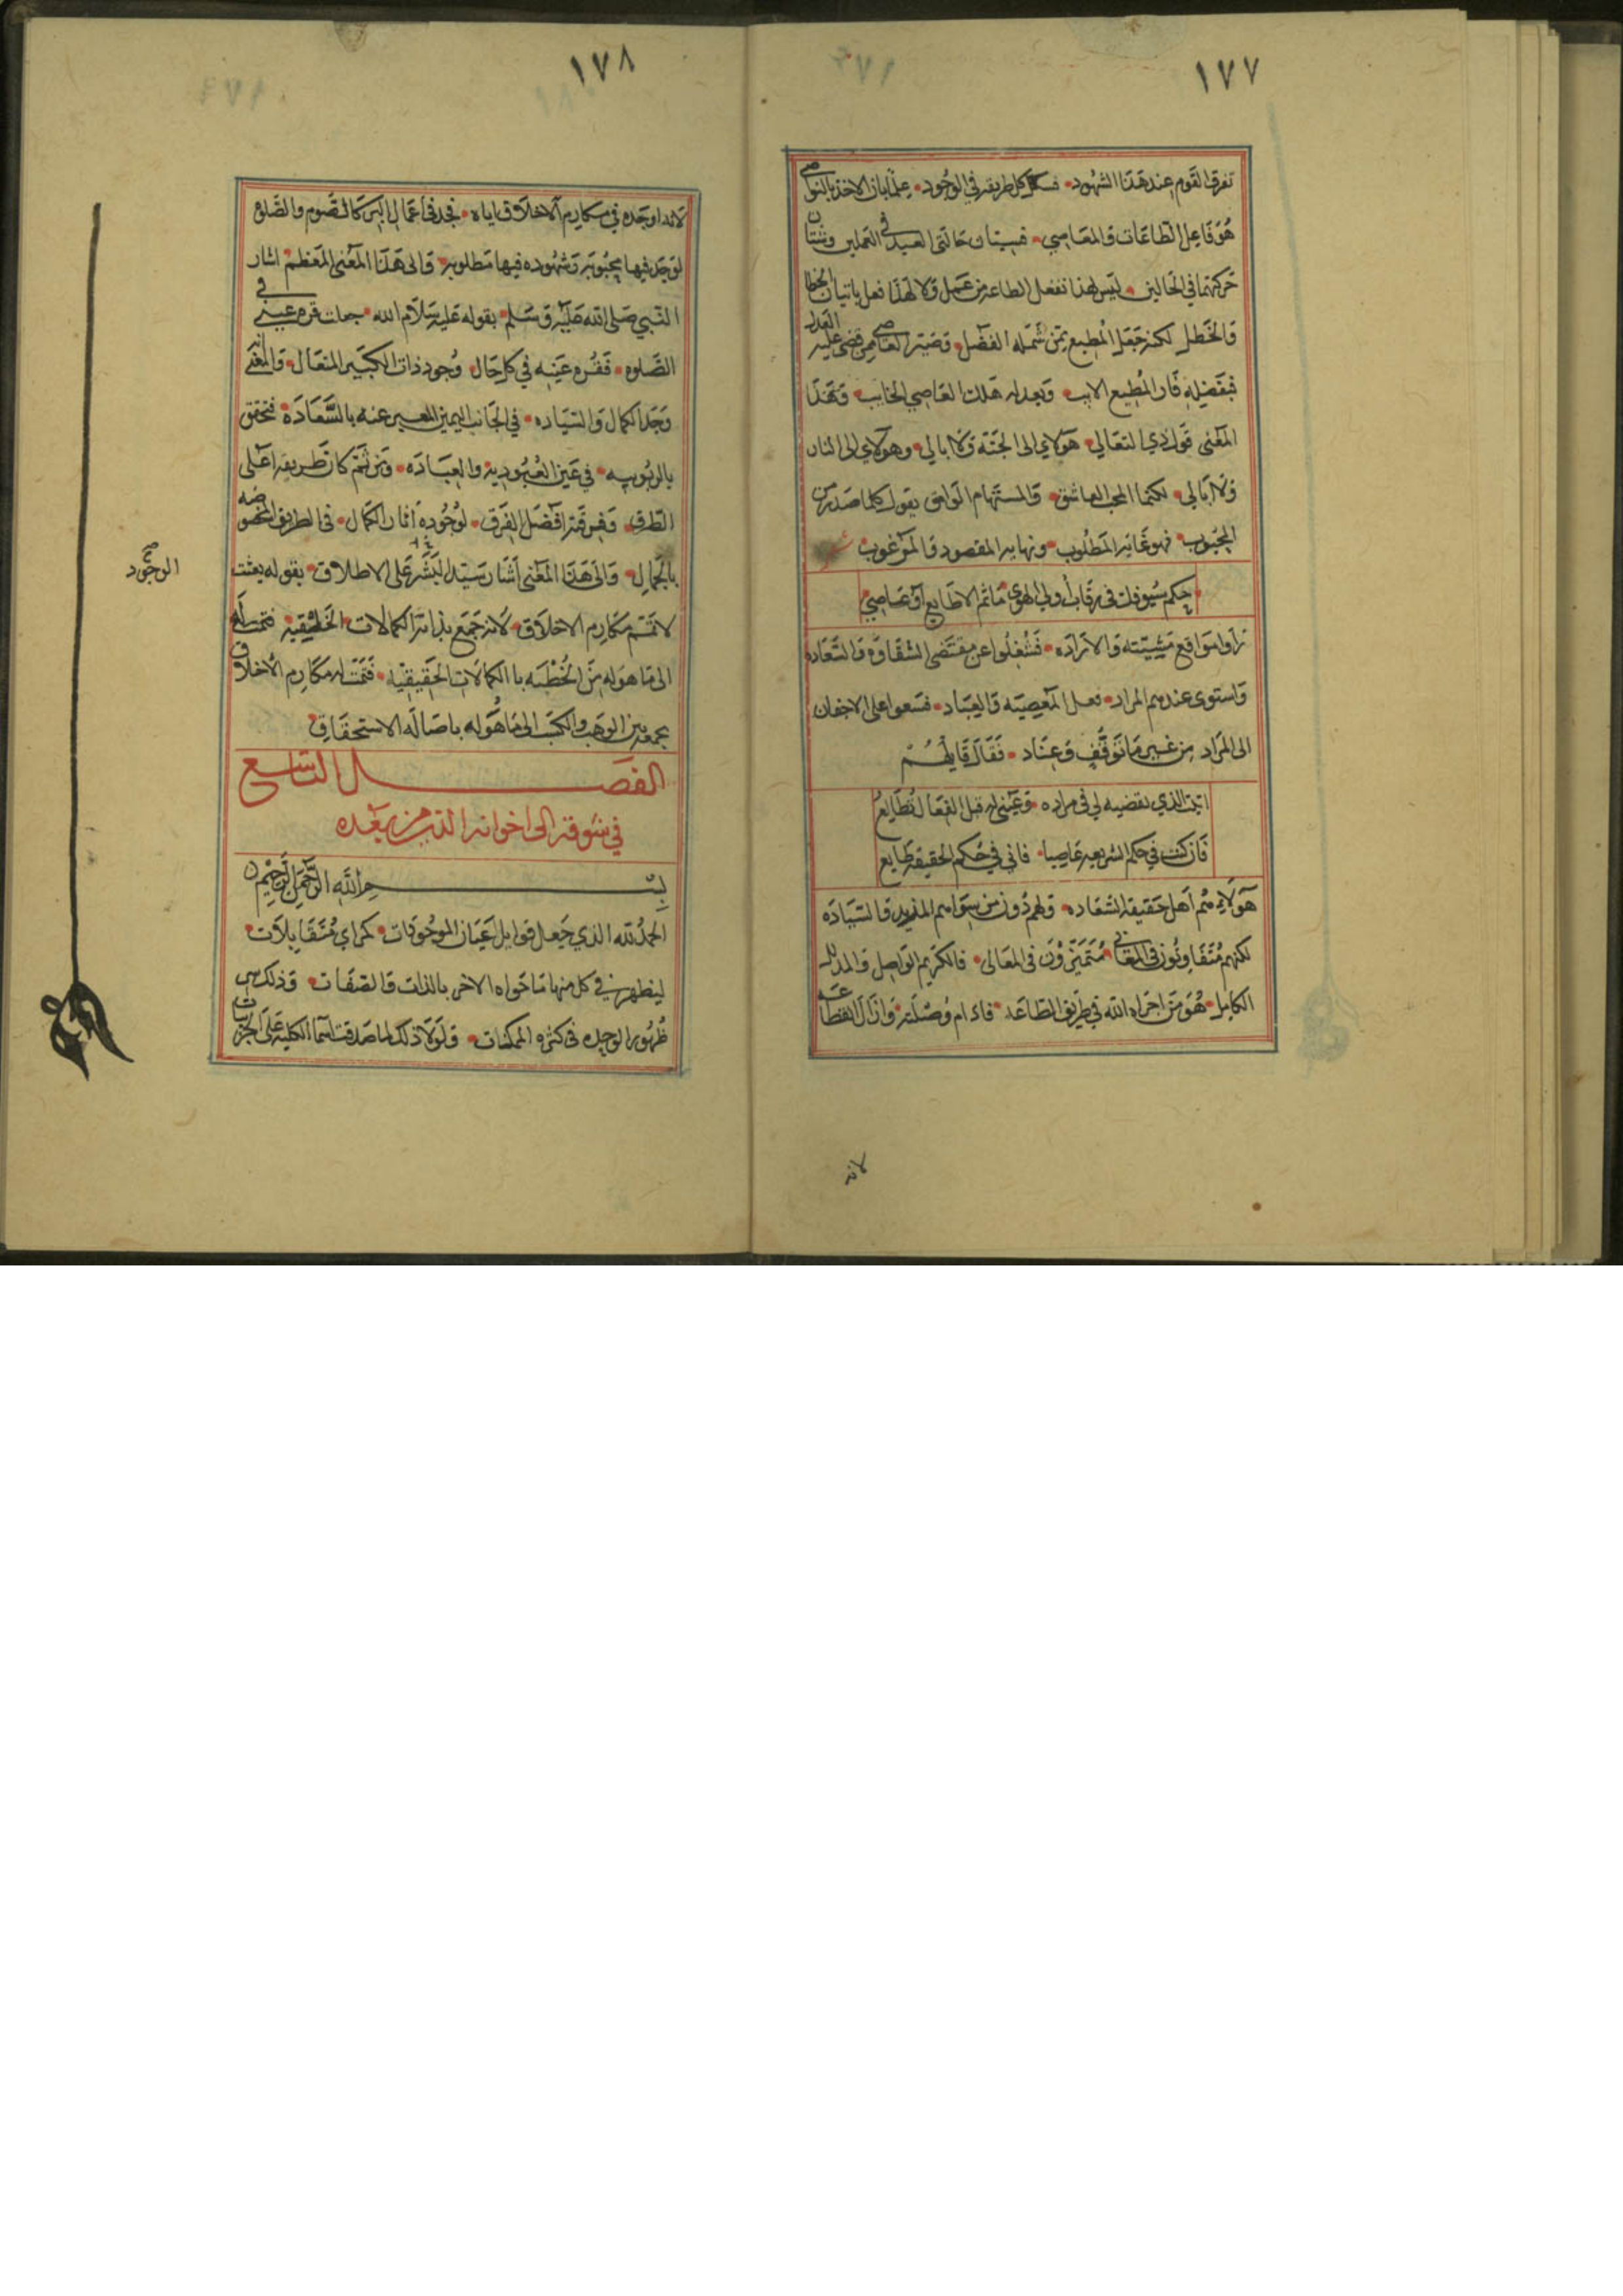 ١٧٧
تفرق القوم عند هذا الشهود • فسلك كل طريقه في الوجود • علما بان الاخذ بالنواصي
هو فاعل الطاعات والمعاصي • فسيتان حالتى العبد في العملين وشتان
حركتهما في الحالين • ليس لهذا بفعل الطاعه من عمل ولا لهذا فعل باتيان الخطا
والخطل لكنه جعل المطيع ممن شمله الفضل • وصير العاصي ممن قضى عليه العدل
فبفضله فاز المطيع الايب • وبعدله هلك العاصي الخايب • وهذا
المعنى قول ذي التعالي • هولاي الى الجنة ولا ابالي • وهولاي الى النار
ولا ابالي • لكنما المحب العاشق • والمستهام الوامق يقول كلما صدر من
المحبوب • فهو غايه المطلوب • ونهايه المقصود والمرغوب • شعر
حكم سيوفك في رقاب أولي الهوى • ما ثم الا طايع او عاصي
نزلوا مواقع مشيئته والاراده • فشغلوا عن مقتضى الشقاوه والسعاده
واستوى عندهم المراد • فعل المعصيته والعباد • فسعوا على الاجفان
الى المراد من غير ما توقف وعناد • فقال قايلهم
اتيت الذي يقضيه لي في مراده • وعيني له قبل الفعال تطايع
فان كنت في حكم الشريعه عاصيا • فاني في حكم الحقيقه طايع
هولاء هم اهل حقيقه الشعاده • ولهم دون من سواهم المزيد والسياده
لكنهم متفاوتون في المعاني • متميزون في المعالى • فالكريم الواصل والمدلل
الكامل • هو من اجراه الله في طريق الطاعه • فادام وصلته • وازال انقطاعه
لانه
١٧٨
لانه اوجده في مكارم الاخلاق اياه • فجد في اعمال البر كالصوم والصلوه
لوجد فيها بمحبوبه وشهوده فيها مطلوبه • والى هذا المعنى المعظم اشار
النبي صلى الله عليه وسلم • بقوله عليه سلام الله • جعلت قره عيني في
الصلوه • فقره عينه في كل حال • وجود ذات الكبير المتعال • والمعنى انه
وجد الكمال والسياده • في الجانب اليمين المعبر عنه بالسعادة • فتحقق
بالربوبيه • في عين العبودية والعباده • ومن ثم كان طريقه اعلى
الطرق • وفرقته افضل الفرق • لوجوده اثار الكمال • في الطريق المخصوصه
بالجمال • والى هذا المعنى أشار سيد البشر على الاطلاق • بقوله بعثت
لاتمم مكارم الاخلاق • لانه جمع بذاته الكمالات الخلقيه • فتمت له
الى ما هو له من الخطبه با الكمالات الحقيقيه • فتمت له مكارم الاخلاق
بجمعه بين الوهب والكسب الى ما هو له باصاله الاستحقاق
الوجود صح
الفصل التاسع
في شوقه الى اخوانه الذين من بعده
بسم الله الرحمن الرحيم
الحمد لله الذي جعل قوابل اعيان الموجودات • كمراي متقابلات •
ليظهر في كل منها ما حواه الاخر بالذات والصفات • وذلك سر
ظهور الوحده في كثره الممكنات • ولولا ذلك لما صدقت اسما الكليه على الجزئيات